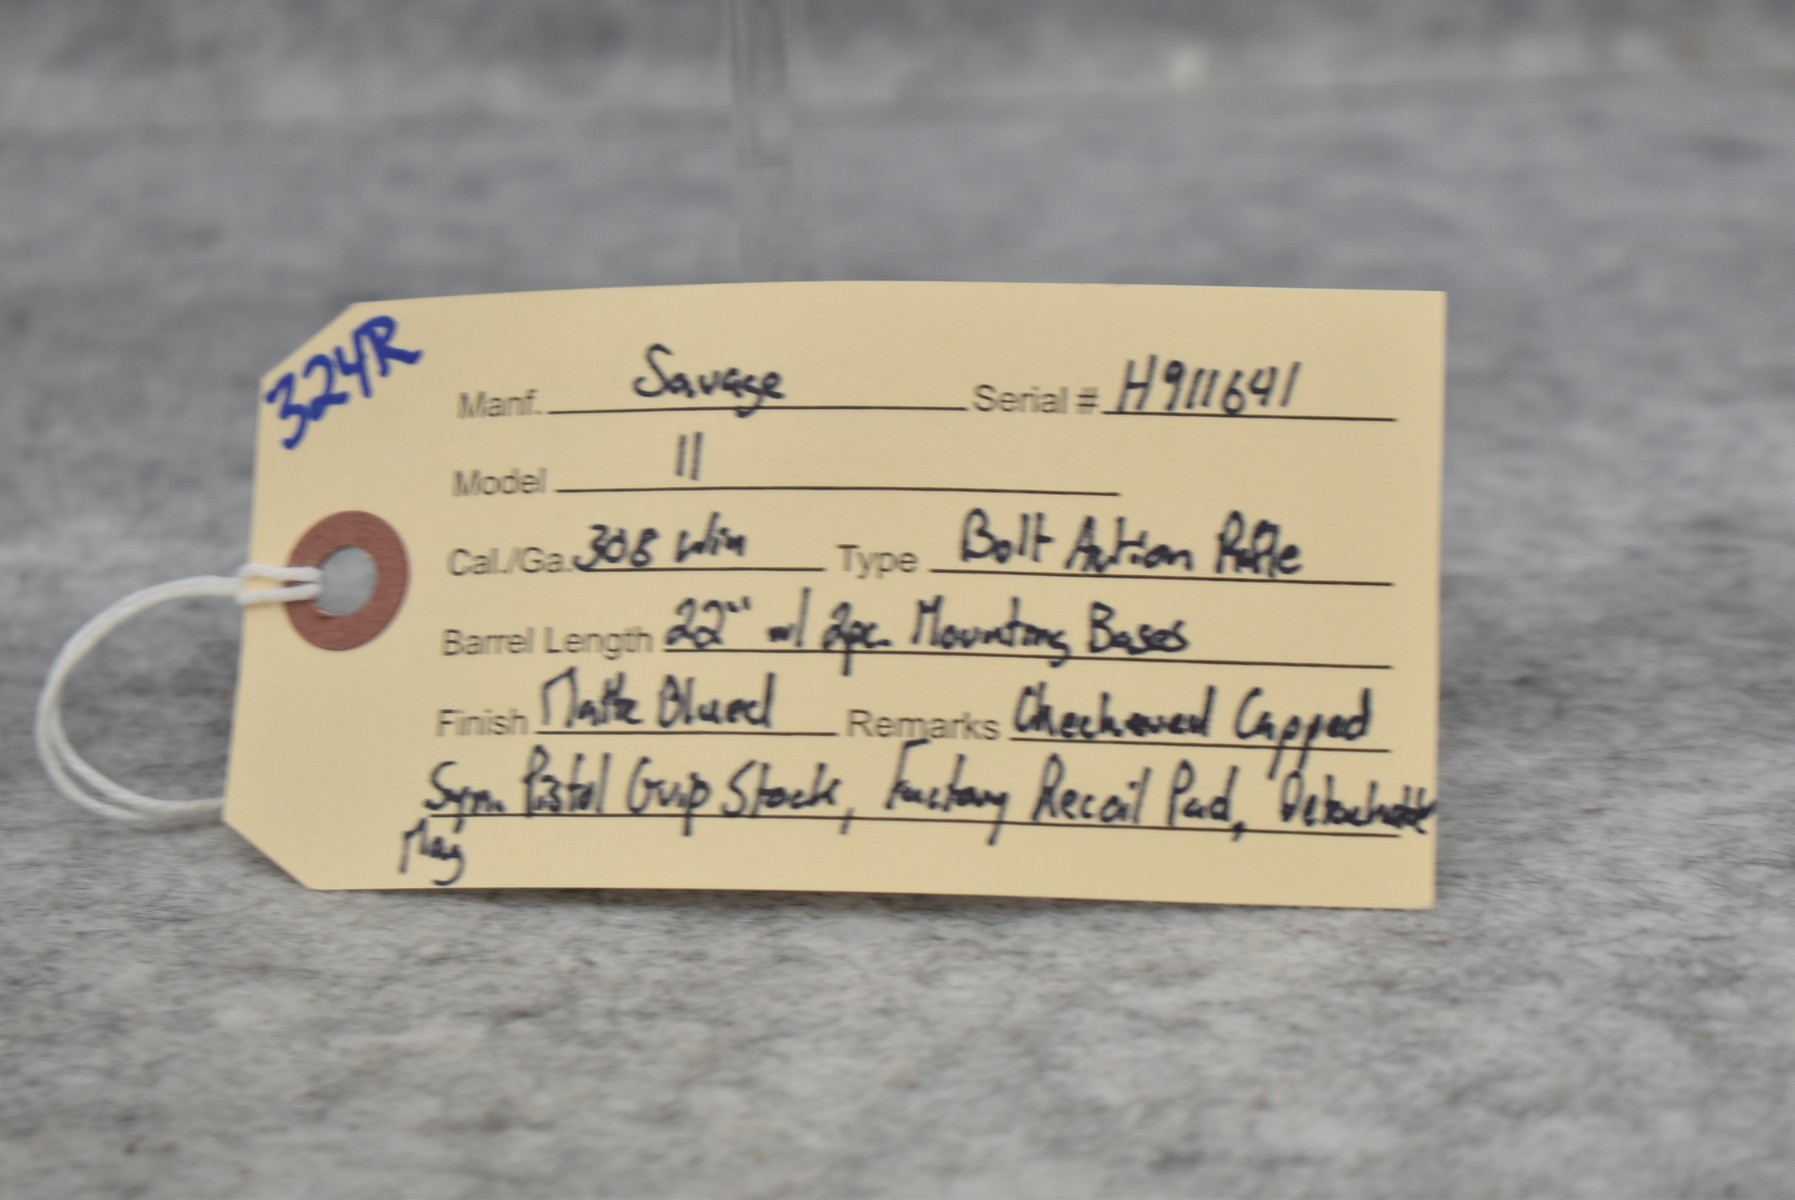 324R
Manf. Savage Serial # H911641
Model 11
Cal./Ga. 308 Win Type Bolt Action Rifle
Barrel Length 22" w/ 2pc. Mounting Bases
Finish Matte Blued Remarks Checkered Capped
Syn. Pistol Grip Stock, Factory Recoil Pad, Detachable
Mag